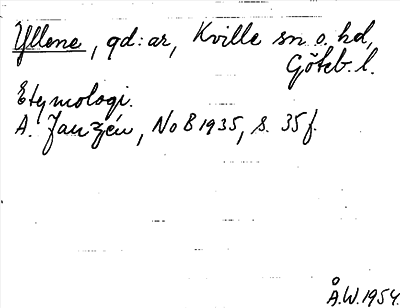 Yllene, gd:ar, Kville sn o. hd,
Göteb. l.
Etymologi.
A. Janzén, NoB 1935, s. 35 f.
Å.W. 1954.